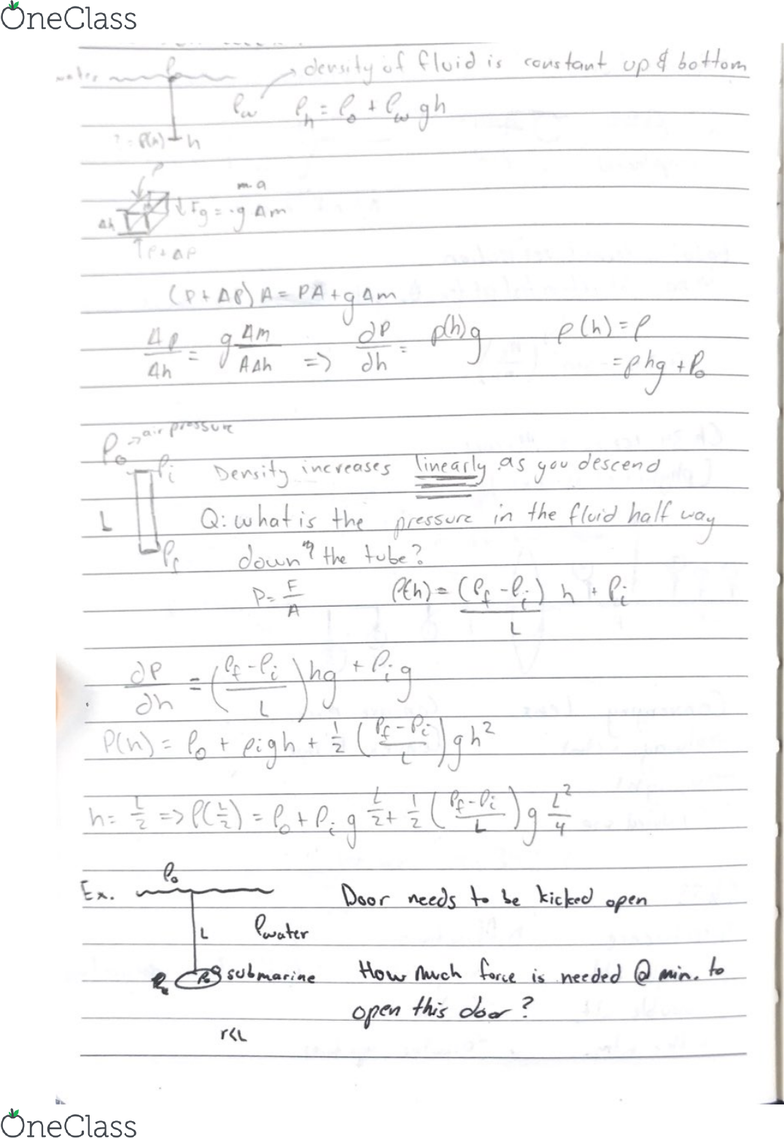 OneClass
water P₀ → density of fluid is constant up & bottom
ρw Pₕ = P₀ + ρw gh
? = P(h) h
P
m a
Δh ↓ Fg = -g Δm
↑ P + ΔP
(P + ΔP) A = PA + g Δm
ΔP/Δh = g Δm/AΔh => ∂P/∂h = ρ(h)g ρ(h) = ρ
= ρhg + P₀
P₀ → air pressure
ρi Density increases linearly as you descend
L Q: what is the pressure in the fluid half way
ρf down the tube?
P = F/A ρ(h) = (ρf - ρi)/L h + ρi
∂P/∂h = (ρf - ρi / L) hg + ρi g
P(h) = P₀ + ρigh + 1/2 (ρf - ρi / L) gh²
h = L/2 => P(L/2) = P₀ + ρi g L/2 + 1/2 (ρf - ρi / L) g L²/4
Ex. P₀ Door needs to be kicked open
L ρwater
P₀ submarine How much force is needed @ min. to
open this door?
r<L
OneClass
OneClass